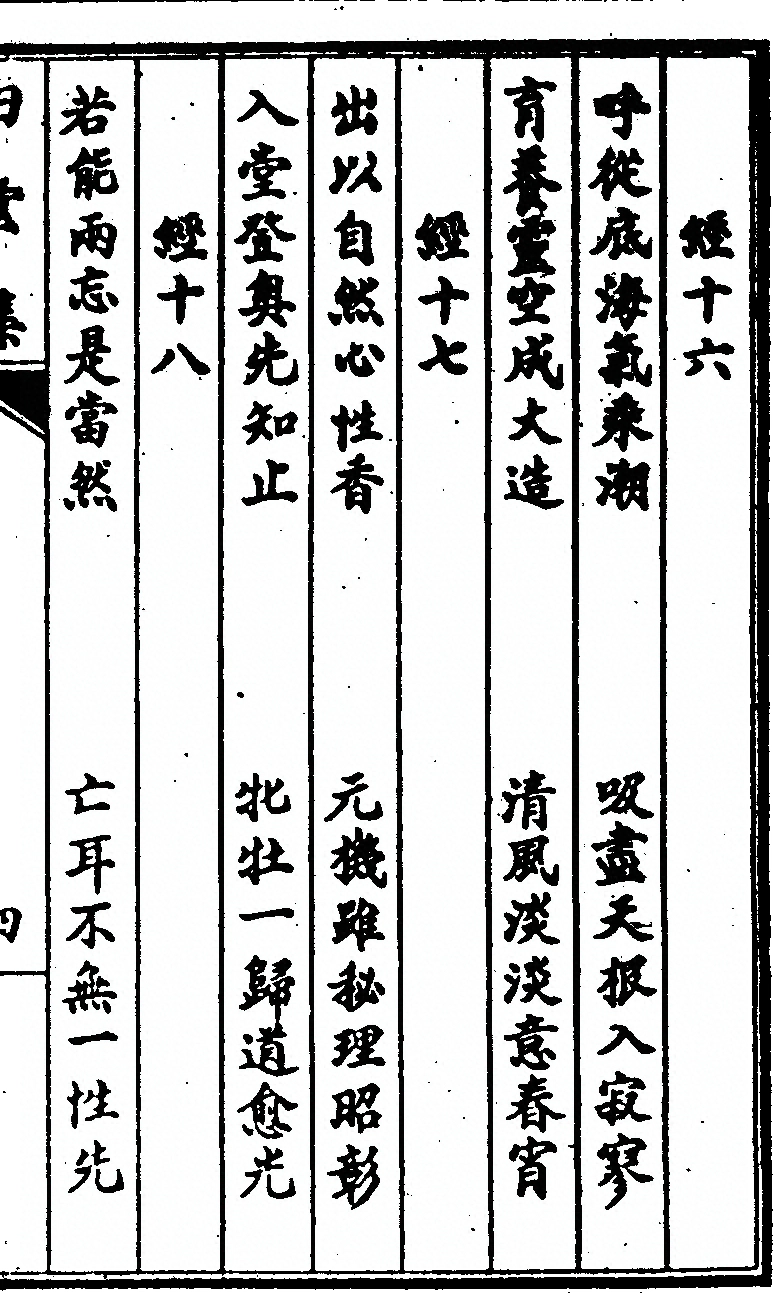 經十六
呼從底海氣乘潮 吸盡天根入寂寥
育養靈空成大造 清風淡淡意春宵
經十七
出以自然心性香 元機雖秘理昭彰
入堂登奧先知止 牝牡一歸道愈光
經十八
若能兩忘是當然 亡耳不無一性先
四